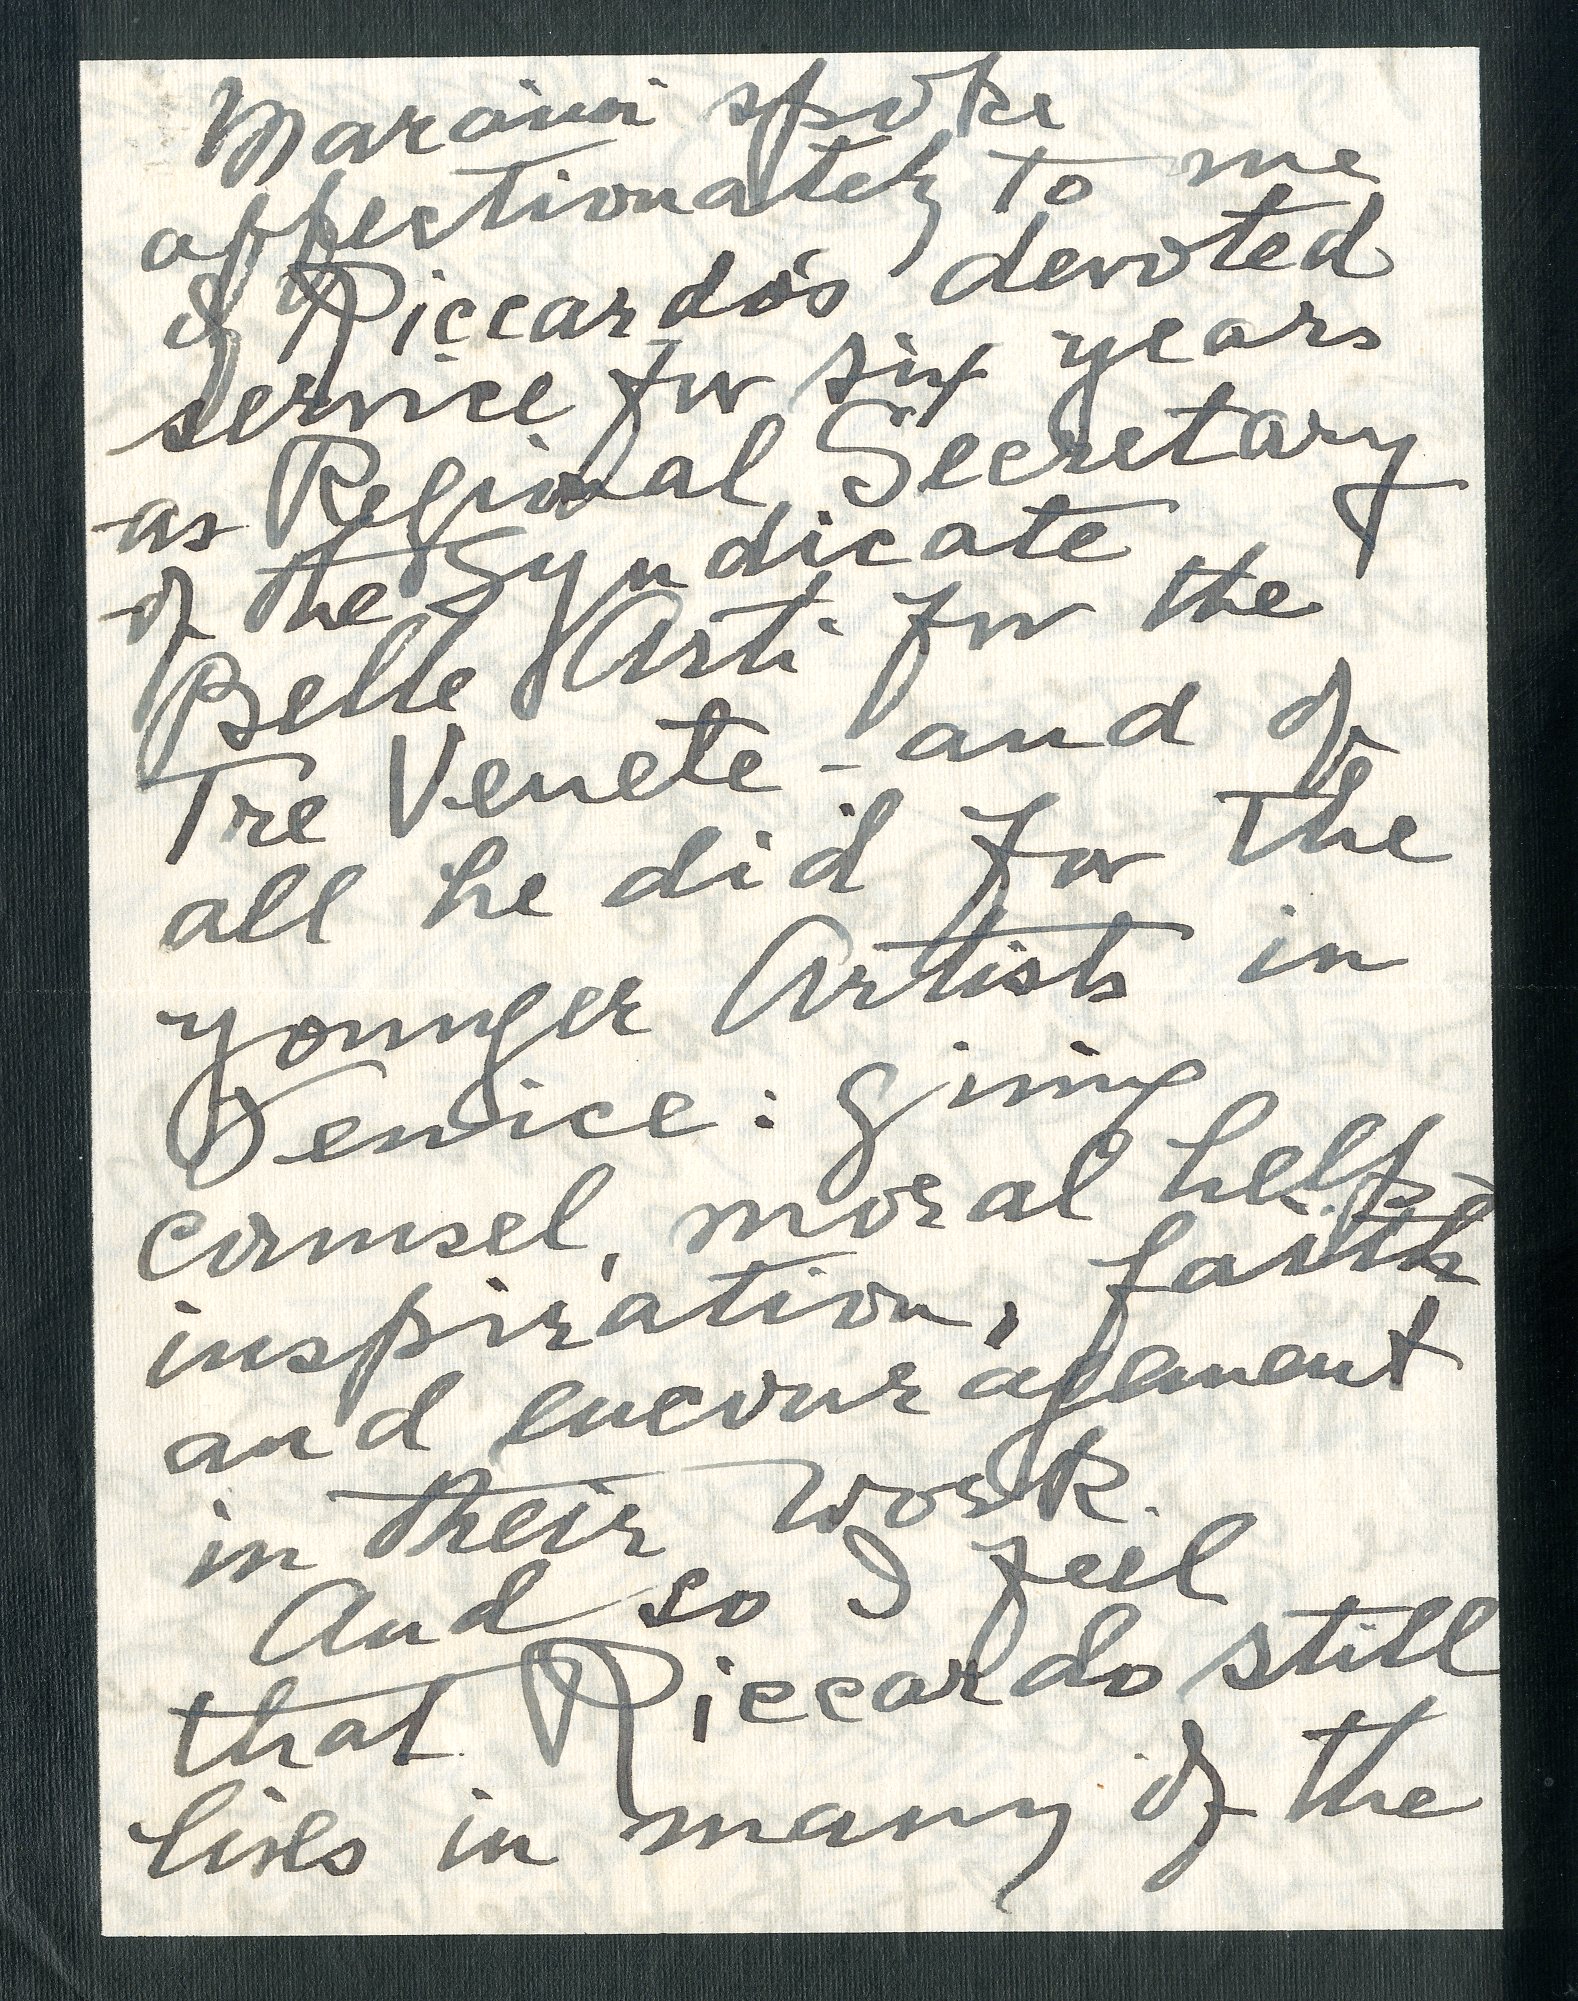 Maraini spoke
affectionately to me
of Riccardo's devoted
service for six years
as Regional Secretary
of the Syndicate
Belle Arti for the
Tre Venete - and of
all he did for the
younger Artists in
Venice : giving
counsel, moral help,
inspiration, faith
and encouragement
in their work.
And so I feel
that Riccardo still
lives in many of the